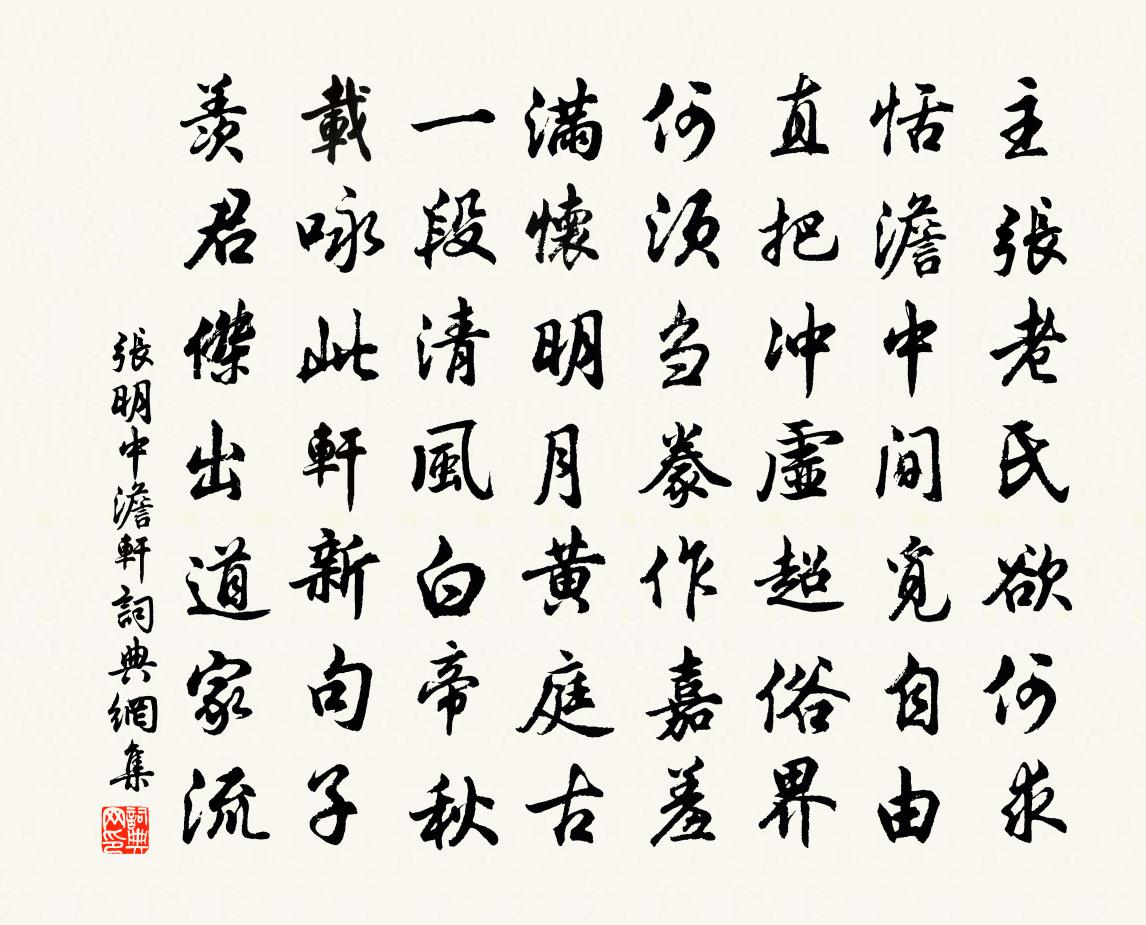 主張老氏欲何求
恬澹中間覓自由
直把冲虛超俗界
何須刍豢作嘉羞
滿懷明月黃庭古
一段清風白帝秋
載咏此軒新句子
羨君傑出道家流
張明中澹軒詞典網集
詞典网印